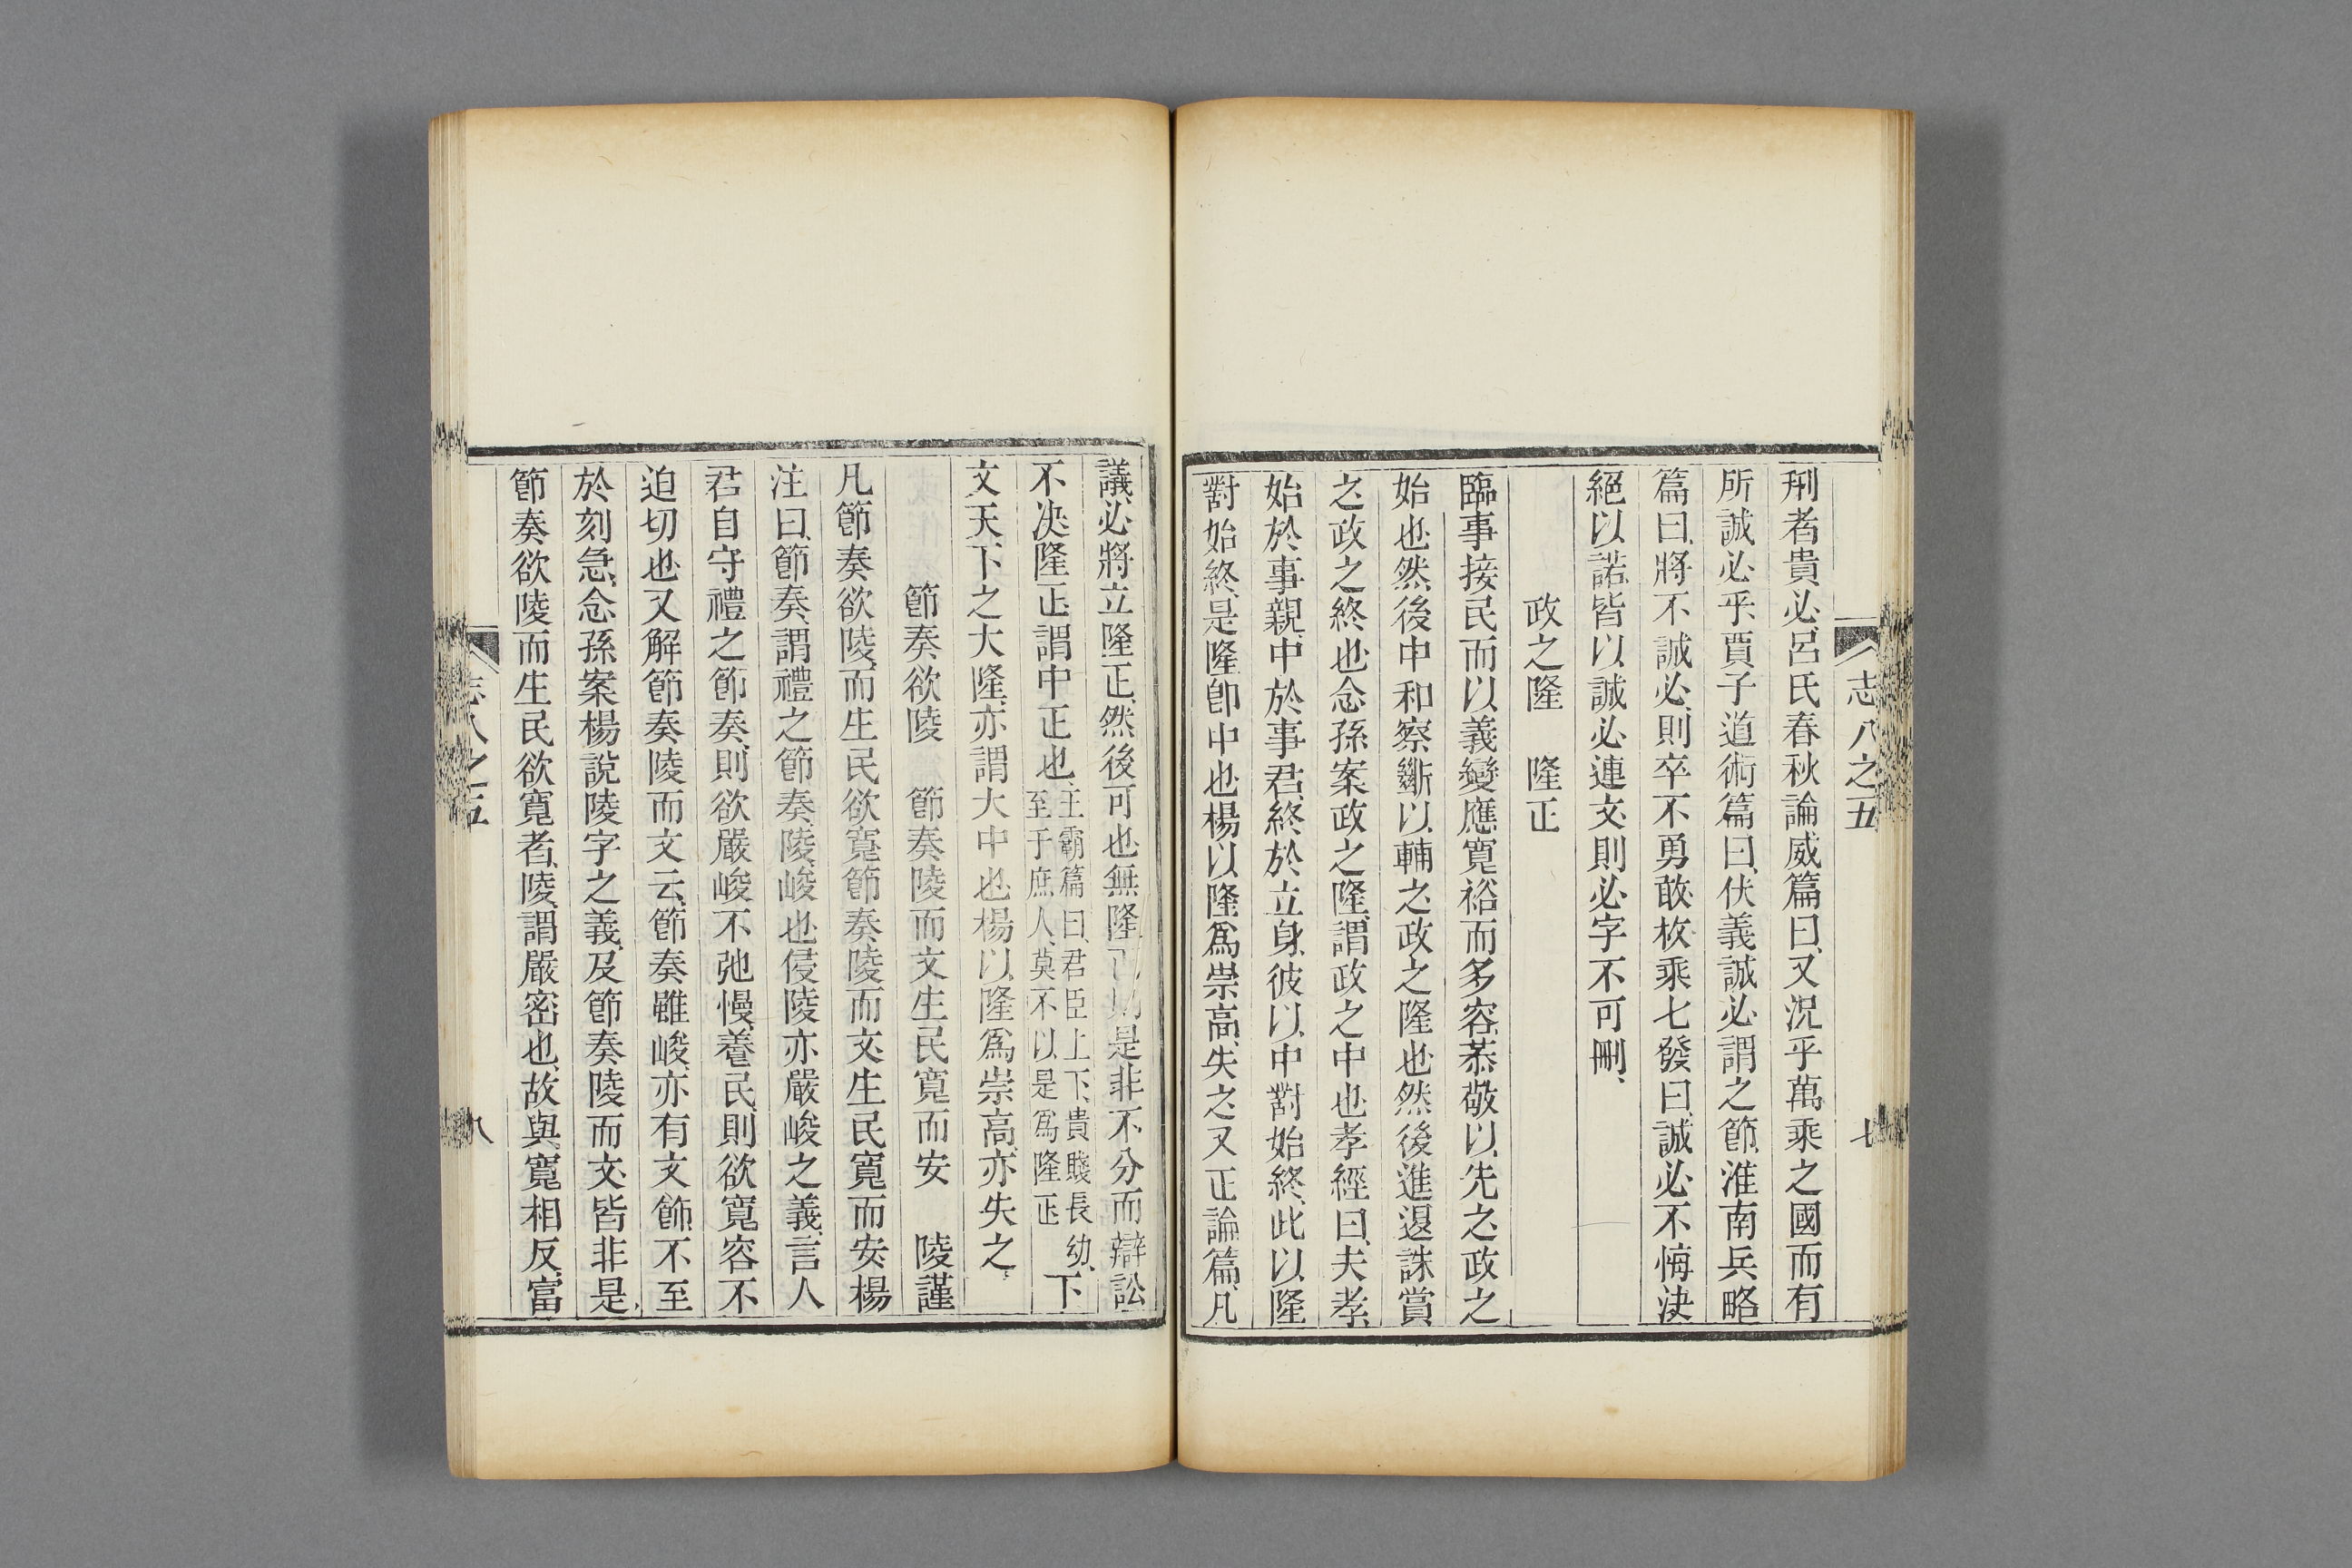 志八之五
七
刑者貴必呂氏春秋論威篇曰又況乎萬乘之國而有
所誠必乎賈子道術篇曰伏義誠必謂之節淮南兵略
篇曰將不誠必則卒不勇敢枚乘七發曰誠必不悔決
絕以諾皆以誠必連文則必字不可刪
政之隆 隆正
臨事接民而以義變應寬裕而多容恭敬以先之政之
始也然後中和察斷以輔之政之隆也然後進退誅賞
之政之終也念孫案政之隆謂政之中也孝經曰夫孝
始於事親中於事君終於立身彼以中對始終此以隆
對始終是隆卽中也楊以隆爲崇高失之又正論篇凡
議必將立隆正然後可也無隆正則是非不分而辯訟
不決隆正謂中正也王霸篇曰君臣上下貴賤長幼至于庶人莫不以是爲隆正下
文天下之大隆亦謂大中也楊以隆爲崇高亦失之
節奏欲陵 節奏陵而文生民寬而安 陵謹
凡節奏欲陵而生民欲寬節奏陵而文生民寬而安楊
注曰節奏謂禮之節奏陵峻也侵陵亦嚴峻之義言人
君自守禮之節奏則欲嚴峻不弛慢養民則欲寬容不
迫切也又解節奏陵而文云節奏雖峻亦有文飾不至
於刻急念孫案楊說陵字之義及節奏陵而文皆非是
節奏欲陵而生民欲寬者陵謂嚴密也故與寬相反富
志八之五
八